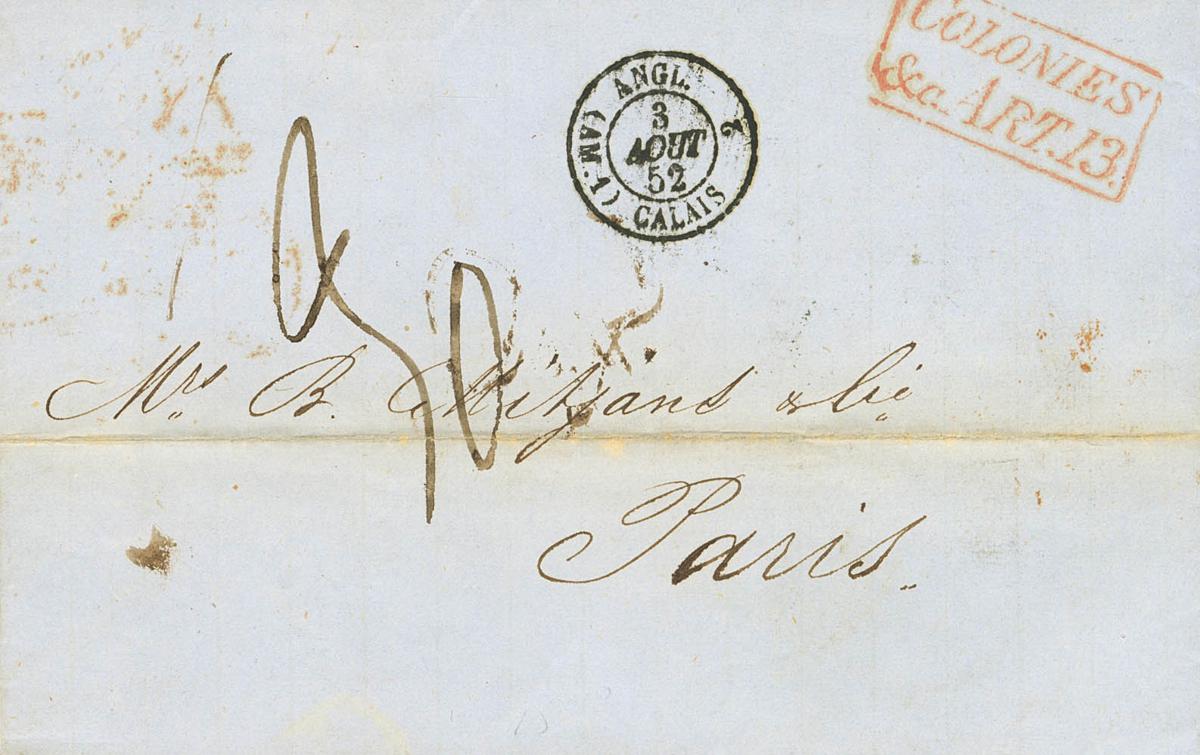 COLONIES
&c. ART. 13.
ANGL.
2
3
AOUT
52
(AM. 1) CALAIS
Mrs B. Mitjans & Cie
Paris.